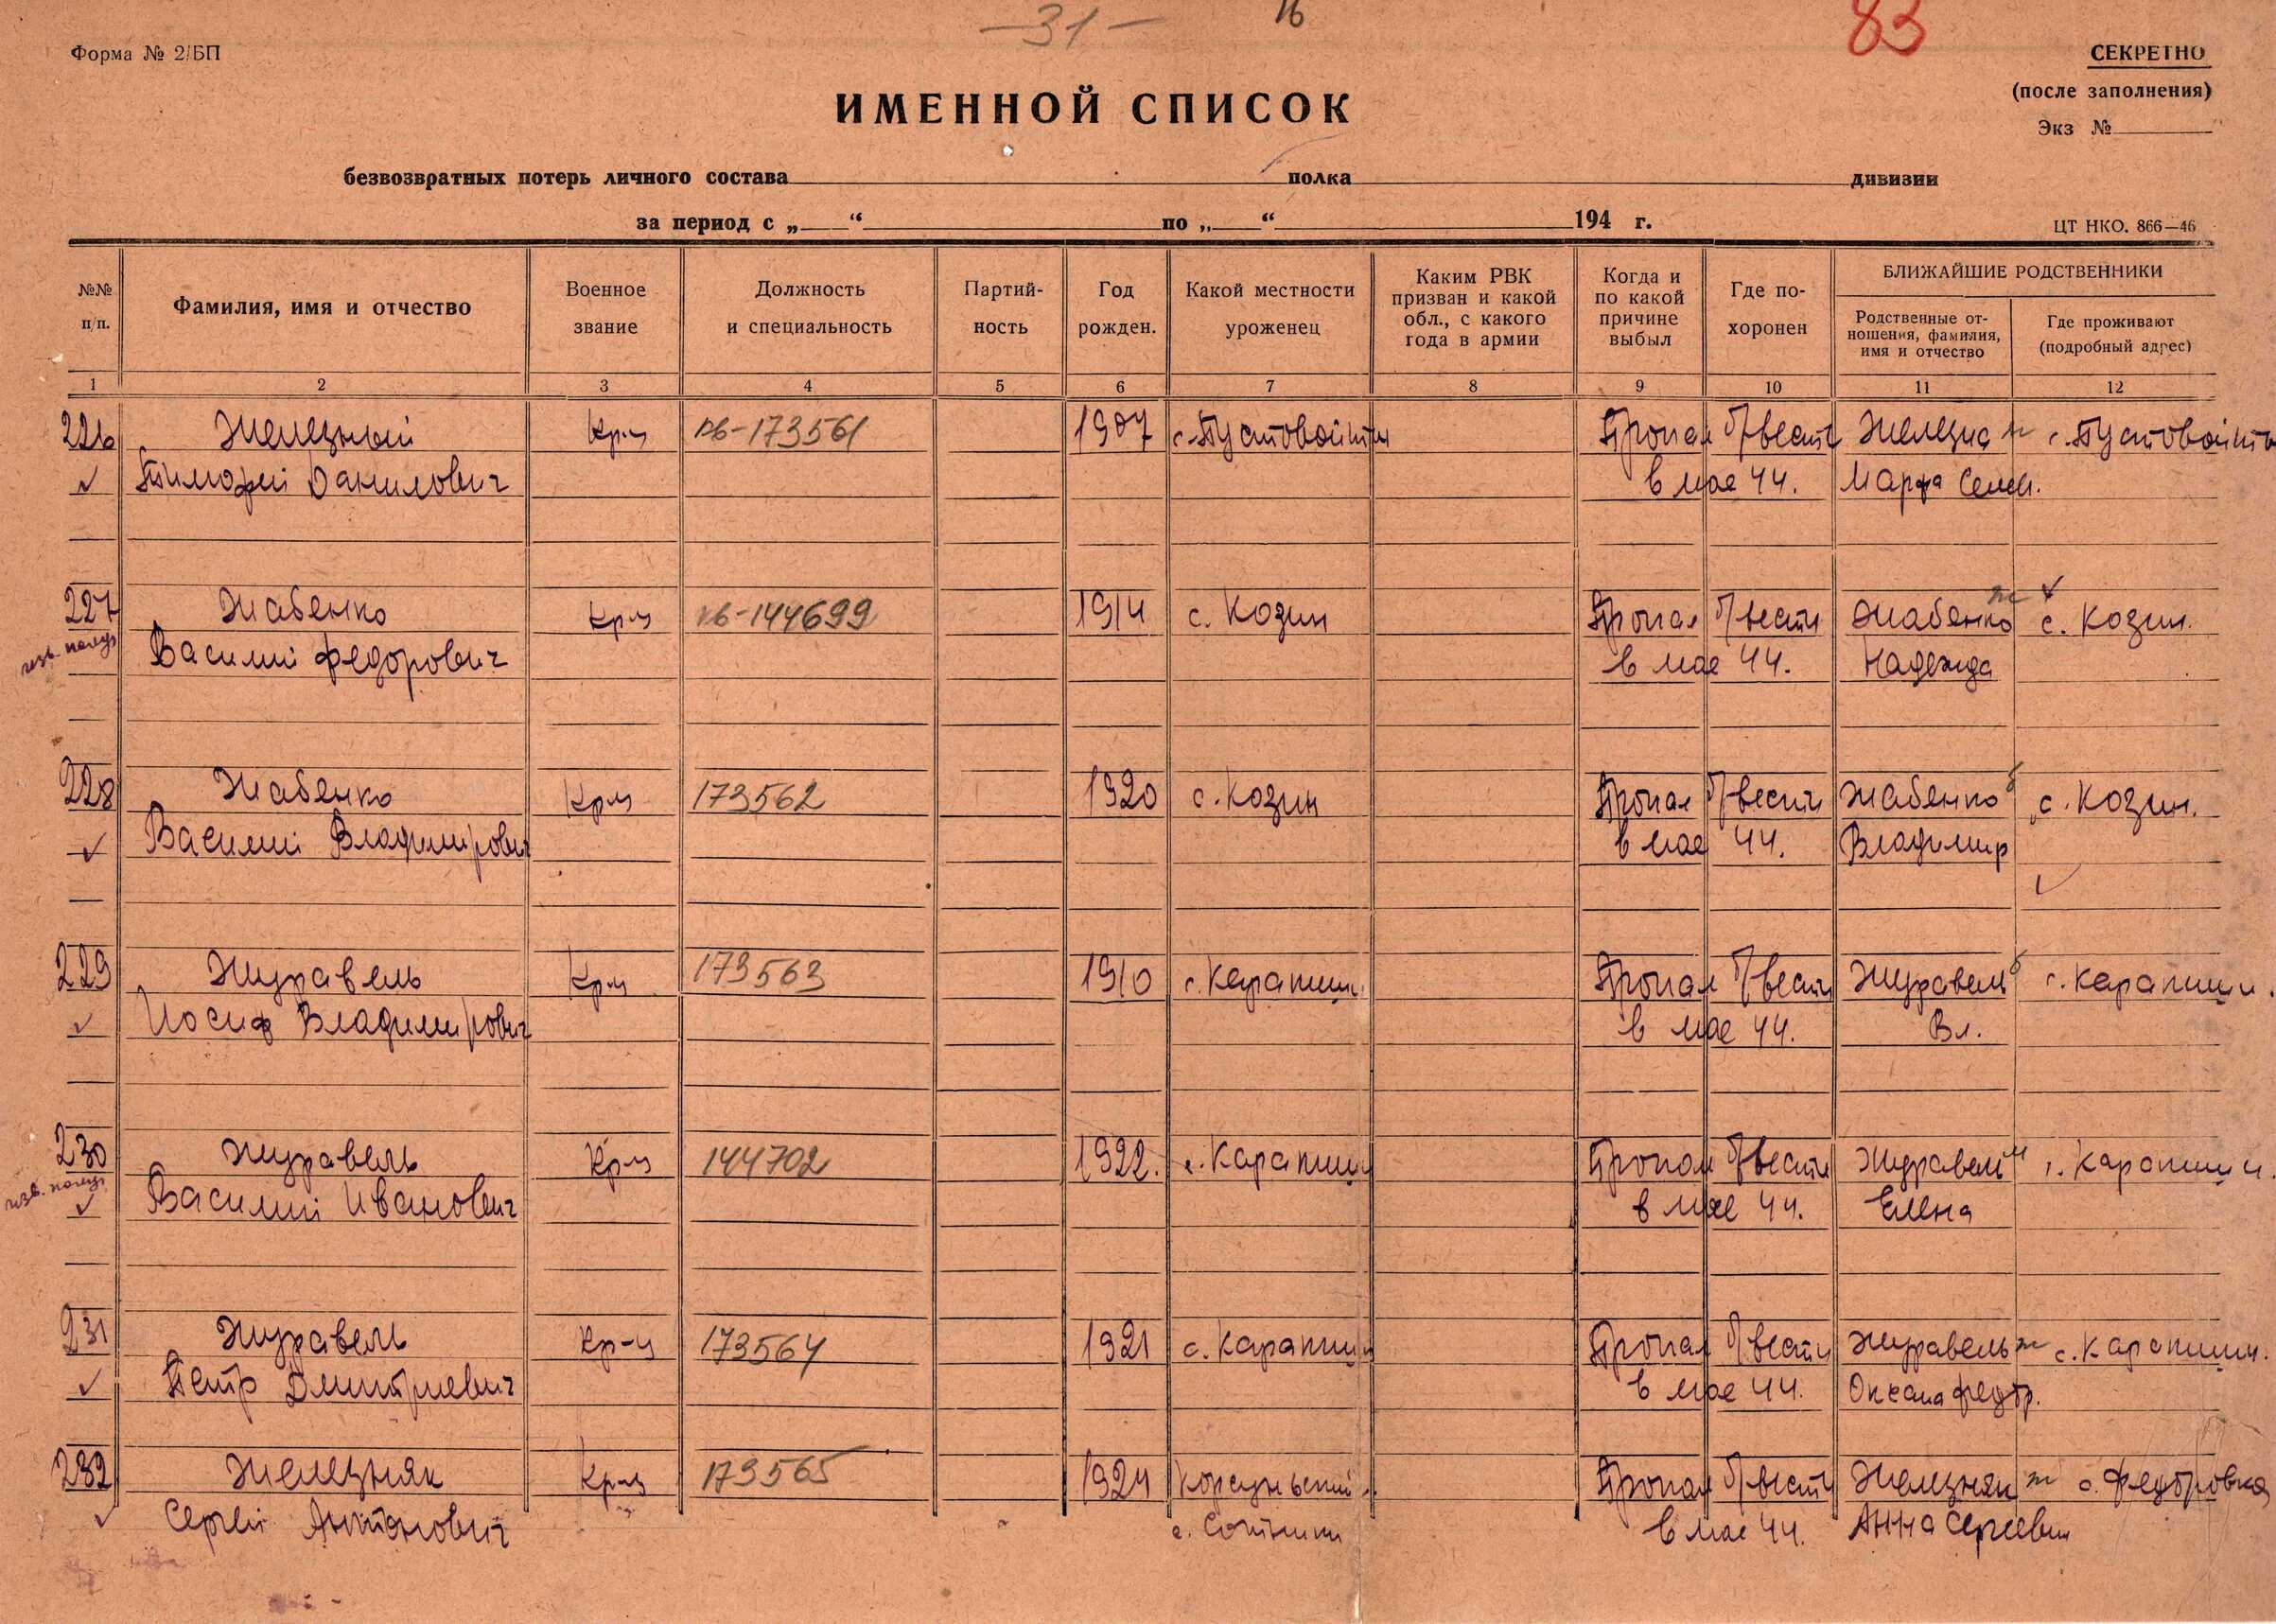 -31- 16 83
Форма № 2/БП
СЕКРЕТНО
(после заполнения)
Экз №
ИМЕННОЙ СПИСОК
безвозвратных потерь личного состава полка дивизии
за период с „ “ по „ “ 194 г.
ЦТ НКО. 866—46
№№ п/п.
Фамилия, имя и отчество
Военное звание
Должность и специальность
Партий-ность
Год рожден.
Какой местности уроженец
Каким РВК призван и какой обл., с какого года в армии
Когда и по какой причине выбыл
Где по-хоронен
БЛИЖАЙШИЕ РОДСТВЕННИКИ
Родственные от-ношения, фамилия, имя и отчество
Где проживают (подробный адрес)
1 2 3 4 5 6 7 8 9 10 11 12
226 Железный Кр-ц пв-173561 1907 с. Пустовойты Пропал б/вести Железная ж с. Пустовойты
Тимофей Данилович в мае 44. Марфа Семен.
227 Жабенко Кр-ц пв-144699 1914 с. Козин Пропал б/вести Жабенко ж с. Козин.
изв. получ Василий Федорович в мае 44. Надежда
228 Жабенко Кр-ц 173562 1920 с. Козин Пропал б/вести Жабенко с. Козин.
Василий Владимирович в мае 44. Владимир
229 Журавель Кр-ц 173563 1910 с. Карапиши Пропал б/вести Журавель с. Карапиши.
Иосиф Владимирович в мае 44. Вл.
230 Журавель Кр-ц 144702 1922. с. Карапиши Пропал б/вести Журавель м с. Карапиши.
изв. получ Василий Иванович в мае 44. Елена
231 Журавель Кр-ц 173564 1921 с. Карапиши Пропал б/вести Журавель ж с. Карапиши.
Петр Дмитриевич в мае 44. Оксана Федор.
232 Железняк Кр-ц 173565 1924 Корсуньский Пропал б/вести Железняк ж с. Федоровка
Сергей Антонович с. Сотники в мае 44. Анна Сергеевн